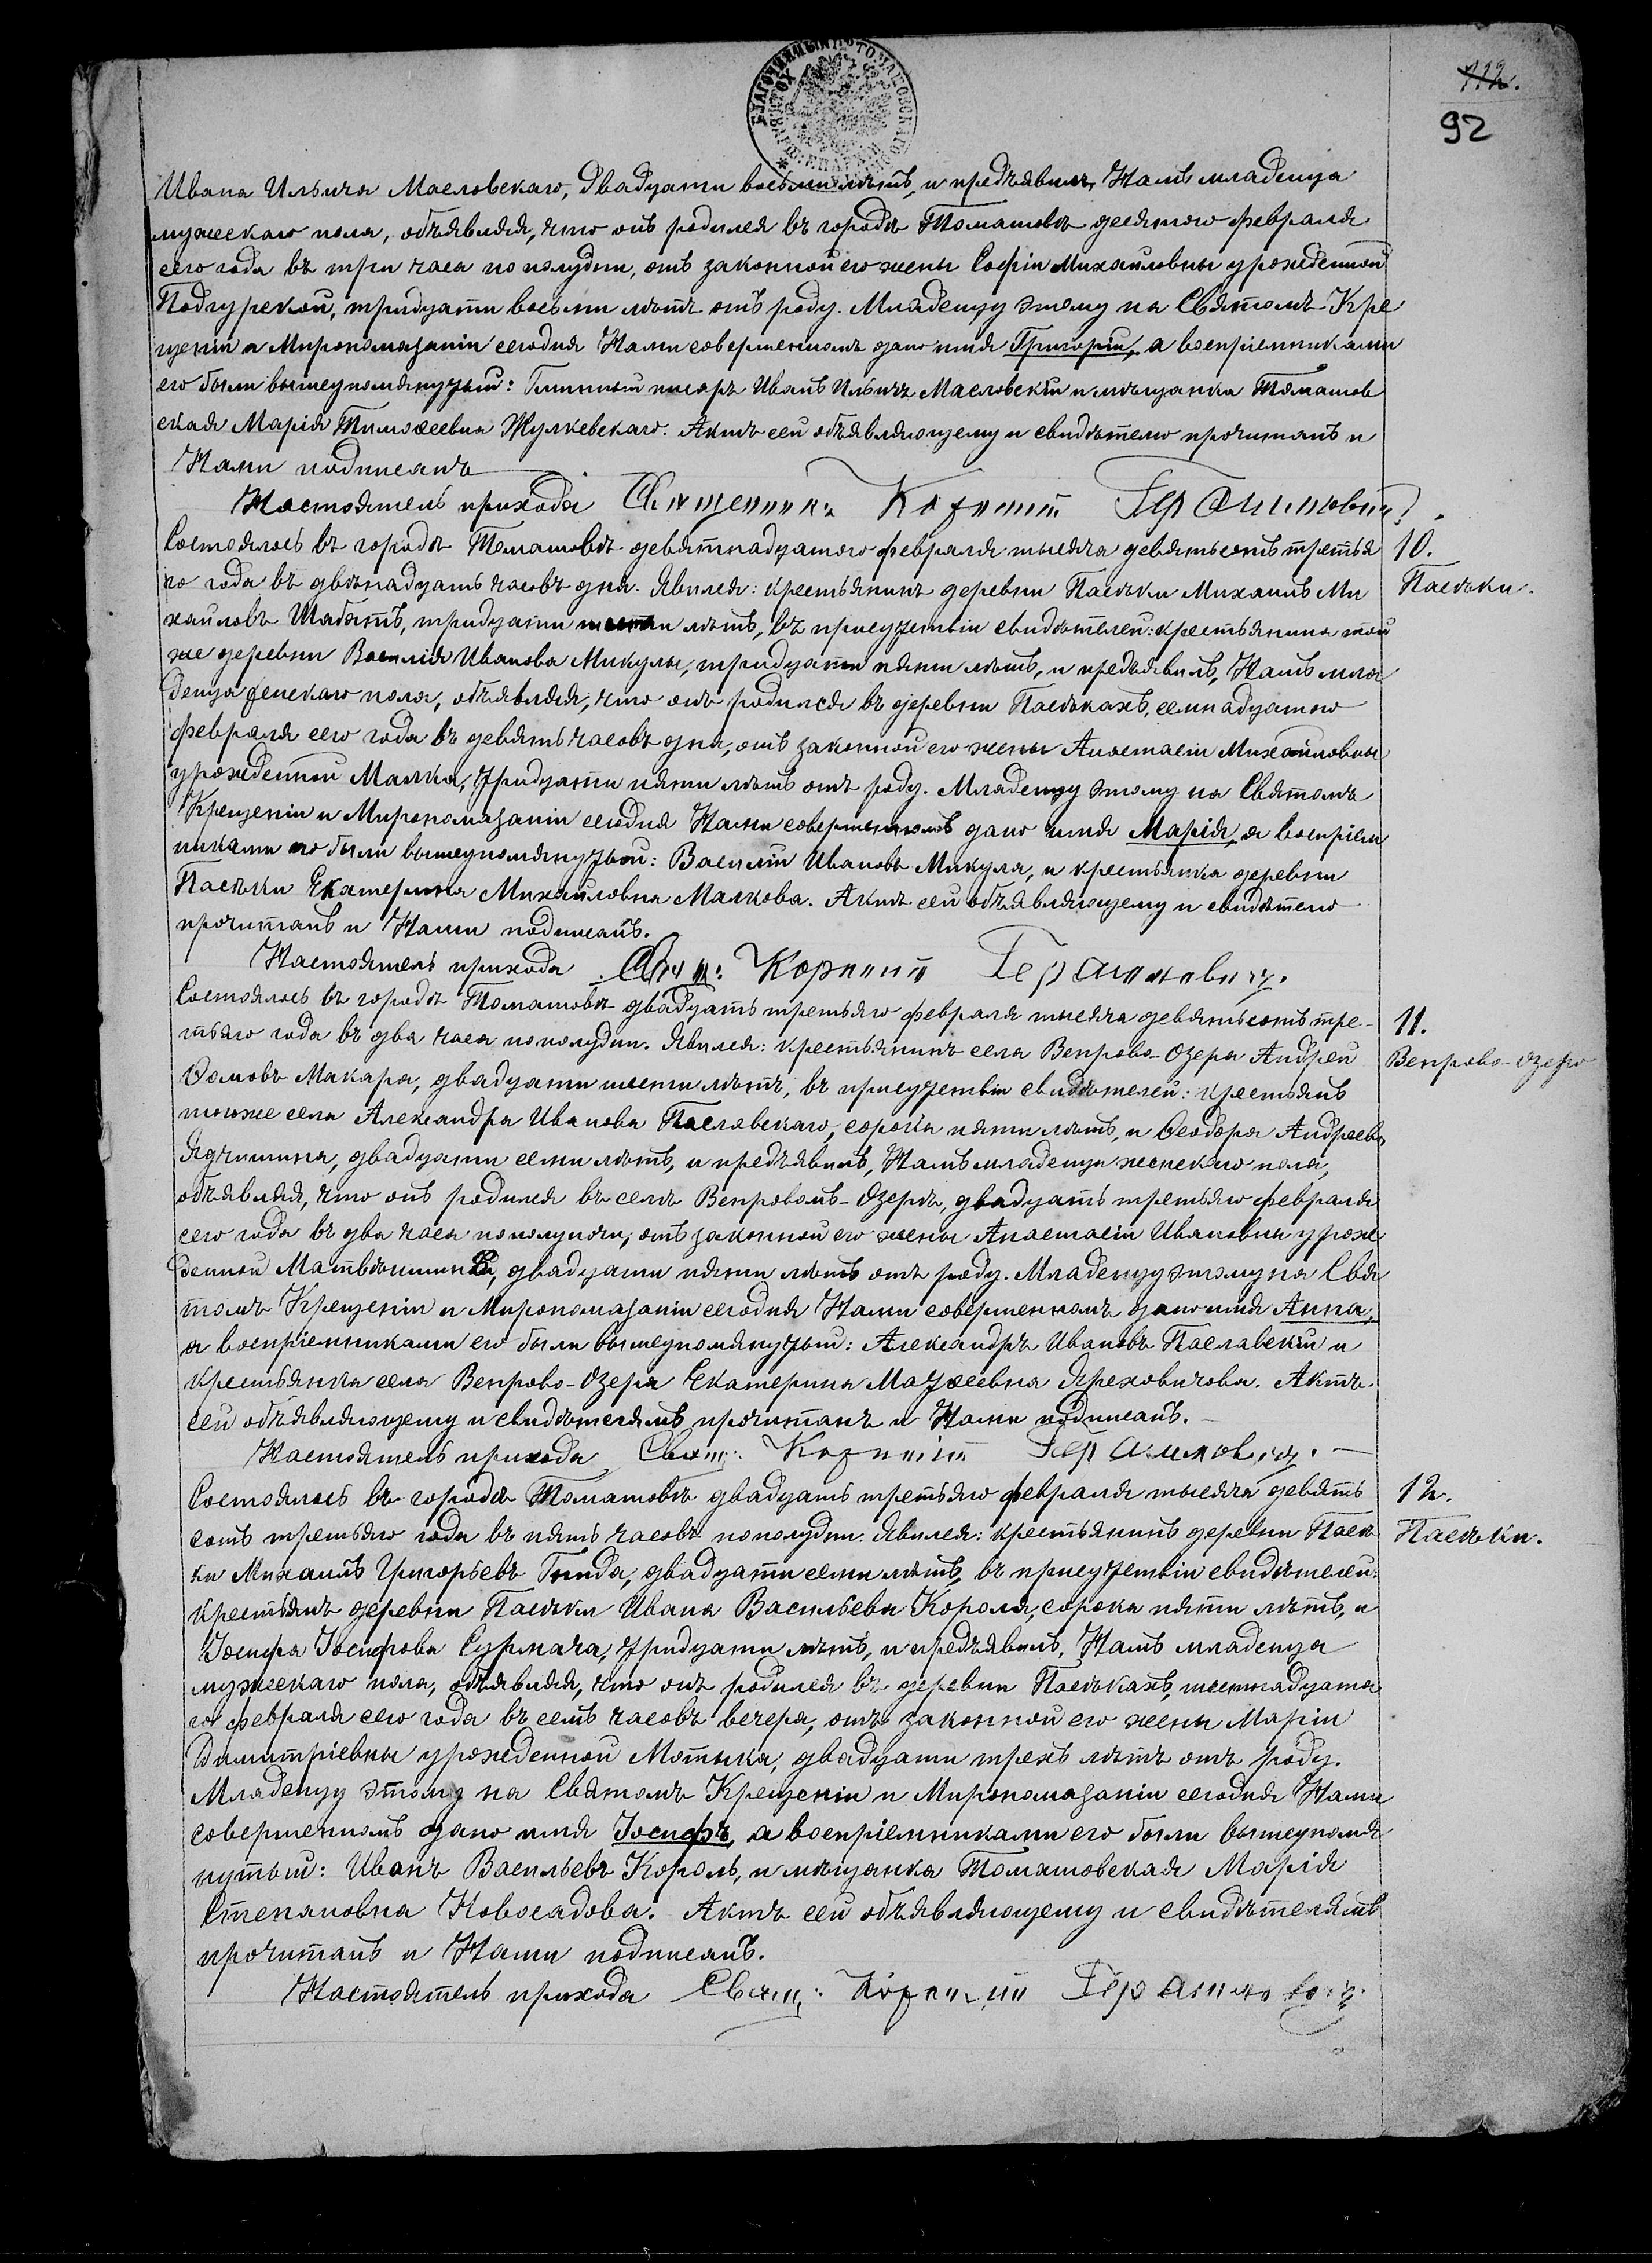 112.
92
Ивана Ильича Масловскаго, двадцати восьми лѣтъ, и предъявилъ Намъ младенца
мужескаго пола, объявляя, что онъ родился въ городѣ Томашовѣ десятого февраля
сего года въ три часа по полудни, отъ законной его жены Софіи Михайловны урожденной
Подгурской, тридцати восьми лѣтъ отъ роду. Младенцу этому на Святомъ Кре
щеніи и Миропомазаніи сегодня Нами совершенномъ дано имя Григорій, а воспріемниками
его были вышеупомянутый: Гминный писарь Иванъ Ильичъ Масловскій и мѣщанка Томашов
ская Марія Тимоѳеевна Жулкевскаго. Актъ сей объявляющему и свидѣтелю прочитанъ и
Нами подписанъ
Настоятель прихода Священникъ Корнилій Герасимовичъ.
10.
Пасѣки.
Состоялось въ городѣ Томашовѣ девятнадцатого февраля тысяча девятьсотъ третья
го года въ двѣнадцать часовъ дня. Явился: крестьянинъ деревни Пасѣки Михаилъ Ми
хайловъ Шабатъ, тридцати шести лѣтъ, въ присутствіи свидѣтелей: крестьянина той
же деревни Василія Иванова Микулы, тридцати пяти лѣтъ, и предъявилъ, Намъ мла
денца женскаго пола, объявляя, что онъ родился въ деревни Пасѣкахъ, семнадцатого
февраля сего года въ девять часовъ дня, отъ законной его жены Анастасіи Михайловны
урожденной Малка, тридцати пяти лѣтъ отъ роду. Младенцу этому на Святомъ
Крещеніи и Миропомазаніи сегодня Нами совершенномъ дано имя Марія, а воспріем
никами его были вышеупомянутый: Василій Ивановъ Микула, и крестьянка деревни
Пасѣки Екатерина Михайловна Малкова. Актъ сей объявляющему и свидѣтелю
прочитанъ и Нами подписанъ.
Настоятель прихода Свящ: Корнилій Герасимовичъ.
11.
Вепрово-Озеро
Состоялось въ городѣ Томашовѣ двадцать третьяго февраля тысяча девятьсотъ тре-
тьяго года въ два часа пополудни. Явился: крестьянинъ села Вепрово-Озера Андрей
Ѳомовъ Макара, двадцати шести лѣтъ, въ присутствіи свидѣтелей: крестьянъ
тогоже села Александра Иванова Паславскаго, сорока пяти лѣтъ, и Ѳеодора Андреева
Ядчишина, двадцати семи лѣтъ, и предъявилъ, Намъ младенца женскаго пола,
объявляя, что онъ родился въ селѣ Вепровомъ-Озерѣ, двадцать третьяго февраля
сего года въ два часа пополуночи, отъ законной его жены Анастасіи Ивановны урож
денной Матвѣишинъ, двадцати пяти лѣтъ отъ роду. Младенцу этому на Свя
томъ Крещеніи и Миропомазаніи сегодня Нами совершенномъ дано имя Анна,
а воспріемниками его были вышеупомянутый: Александръ Ивановъ Паславскій и
крестьянка села Вепрово-Озера Екатерина Матѳеевна Яреховичова. Актъ
сей объявляющему и свидѣтелямъ прочитанъ и Нами подписанъ.
Настоятель прихода Свящ: Корнилій Герасимовичъ.
12.
Пасѣки.
Состоялось въ городѣ Томашовѣ двадцать третьяго февраля тысяча девять
сотъ третьяго года въ пять часовъ пополудни. Явился: крестьянинъ деревни Пасѣ
ки Михаилъ Григорьевъ Гнида, двадцати семи лѣтъ, въ присутствіи свидѣтелей:
крестьянъ деревни Пасѣки Ивана Васильева Короля, сорока пяти лѣтъ, и
Іосифа Іосифова Сурмача, тридцати лѣтъ, и предъявилъ, Намъ младенца
мужескаго пола, объявляя, что онъ родился въ деревни Пасѣкахъ, шестнадцата
го февраля сего года въ семь часовъ вечера, отъ законной его жены Маріи
Димитріевны урожденной Мотыка, двадцати трехъ лѣтъ отъ роду.
Младенцу этому на Святомъ Крещеніи и Миропомазаніи сегодня Нами
совершенномъ дано имя Іосифъ, а воспріемниками его были вышеупомя
нутый: Иванъ Васильевъ Король, и мѣщанка Томашовская Марія
Степановна Новосадова. Актъ сей объявляющему и свидѣтелямъ
прочитанъ и Нами подписанъ.
Настоятель прихода Свящ: Корнилій Герасимовичъ.